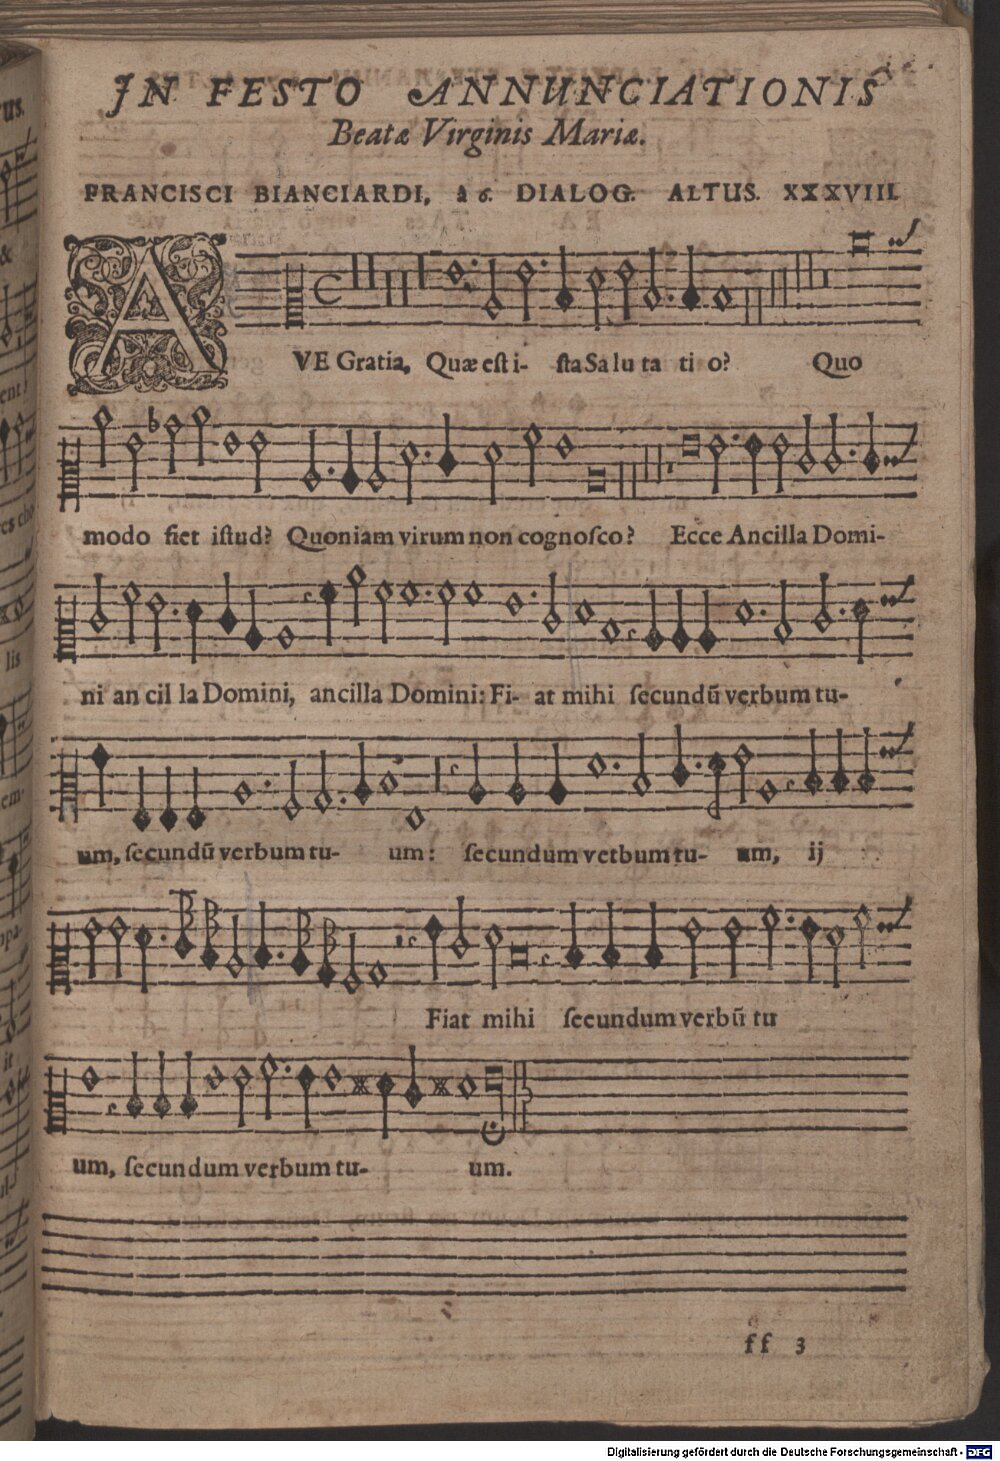 IN FESTO ANNUNCIATIONIS
Beatæ Virginis Mariæ.
FRANCISCI BIANCIARDI, à 6. DIALOG. ALTUS. XXXVIII.
AVE Gratia, Quæ est i- sta Sa lu ta ti o? Quo
modo fiet istud? Quoniam virum non cognosco? Ecce Ancilla Domi-
ni an cil la Domini, ancilla Domini: Fi- at mihi secundū verbum tu-
um, secundū verbum tu- um: secundum vetbum tu- um, ij
Fiat mihi secundum verbū tu
um, secundum verbum tu- um.
ff 3
Digitalisierung gefördert durch die Deutsche Forschungsgemeinschaft - DFG